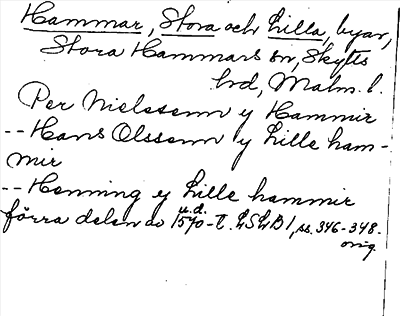 Hammar, Stora och Lilla, byar,
Stora Hammars sn, Skytts
hd, Malm. l.
Per Nielssenn y Hammir
-- Hans Olssenn y Lille ham-
mir
-- Henning y Lille hammir
förra delen av 1570-t. u.d. LSLB1, ss. 346-348.
orig.